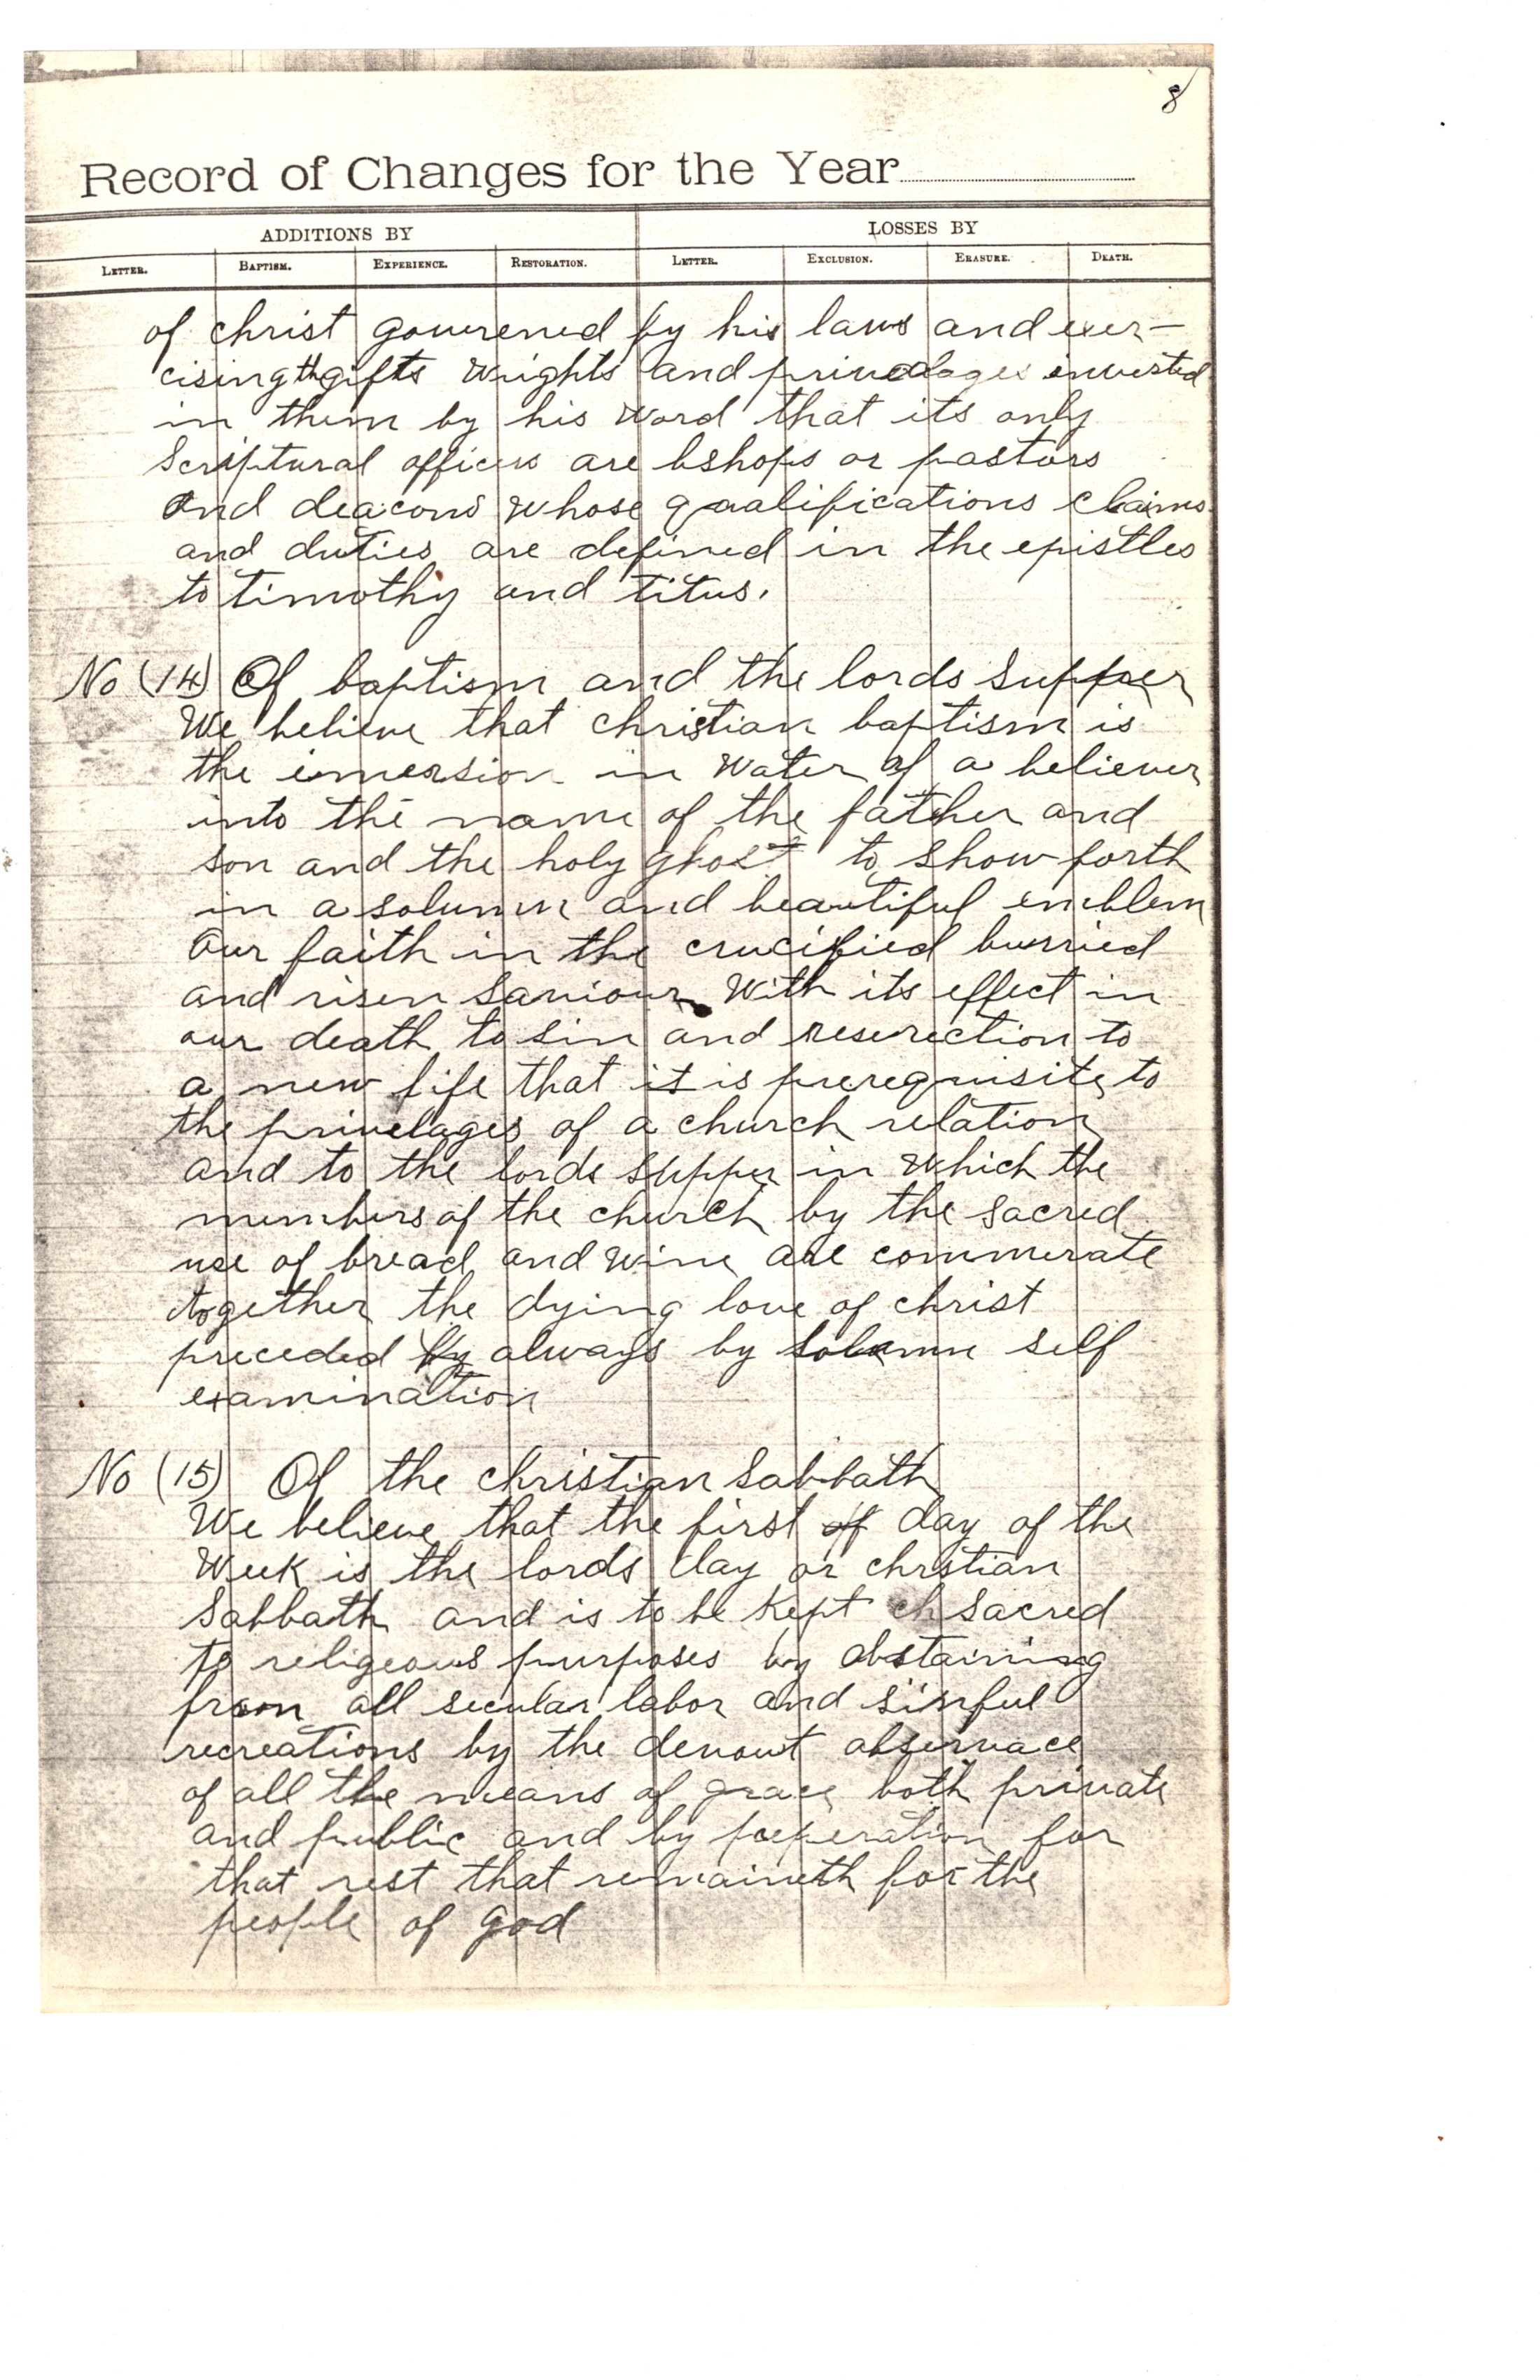 8
Record of Changes for the Year
ADDITIONS BY LOSSES BY
LETTER. BAPTISM. EXPERIENCE. RESTORATION. LETTER. EXCLUSION. ERASURE. DEATH.
of christ gouverened by his laws and exer-
cising th gifts wrights and privelages invested
in them by his word that its only
Scriptural officers are bshops or pastors
And deacons whose qualifications claims
and duties are defined in the epistles
to timothy and titus.
No (14) Of baptism and the lords supper
We believe that christian baptism is
the imersion in water of a believer
into the name of the father and
son and the holy ghost to show forth
in a solumn and beautiful emblem
our faith in the crucified burried
and risen Saviour With its effect in
our death to sin and reserection to
a new life that it is prerequisite to
the privelages of a church relation
and to the lords supper in which the
members of the church by the sacred
use of bread and wine are commerate
together the dying love of christ
preceded by always by solemn self
examination
No (15) Of the christian Sabbath
We believe that the first of day of the
Week is the lords day or chrstian
Sabbath and is to be kept ch sacred
to religeous purposes by abstaining
from all secular labor and sinful
recreations by the devout observace
of all the means of grace both private
and public and by preperation for
that rest that remaineth for the
people of god